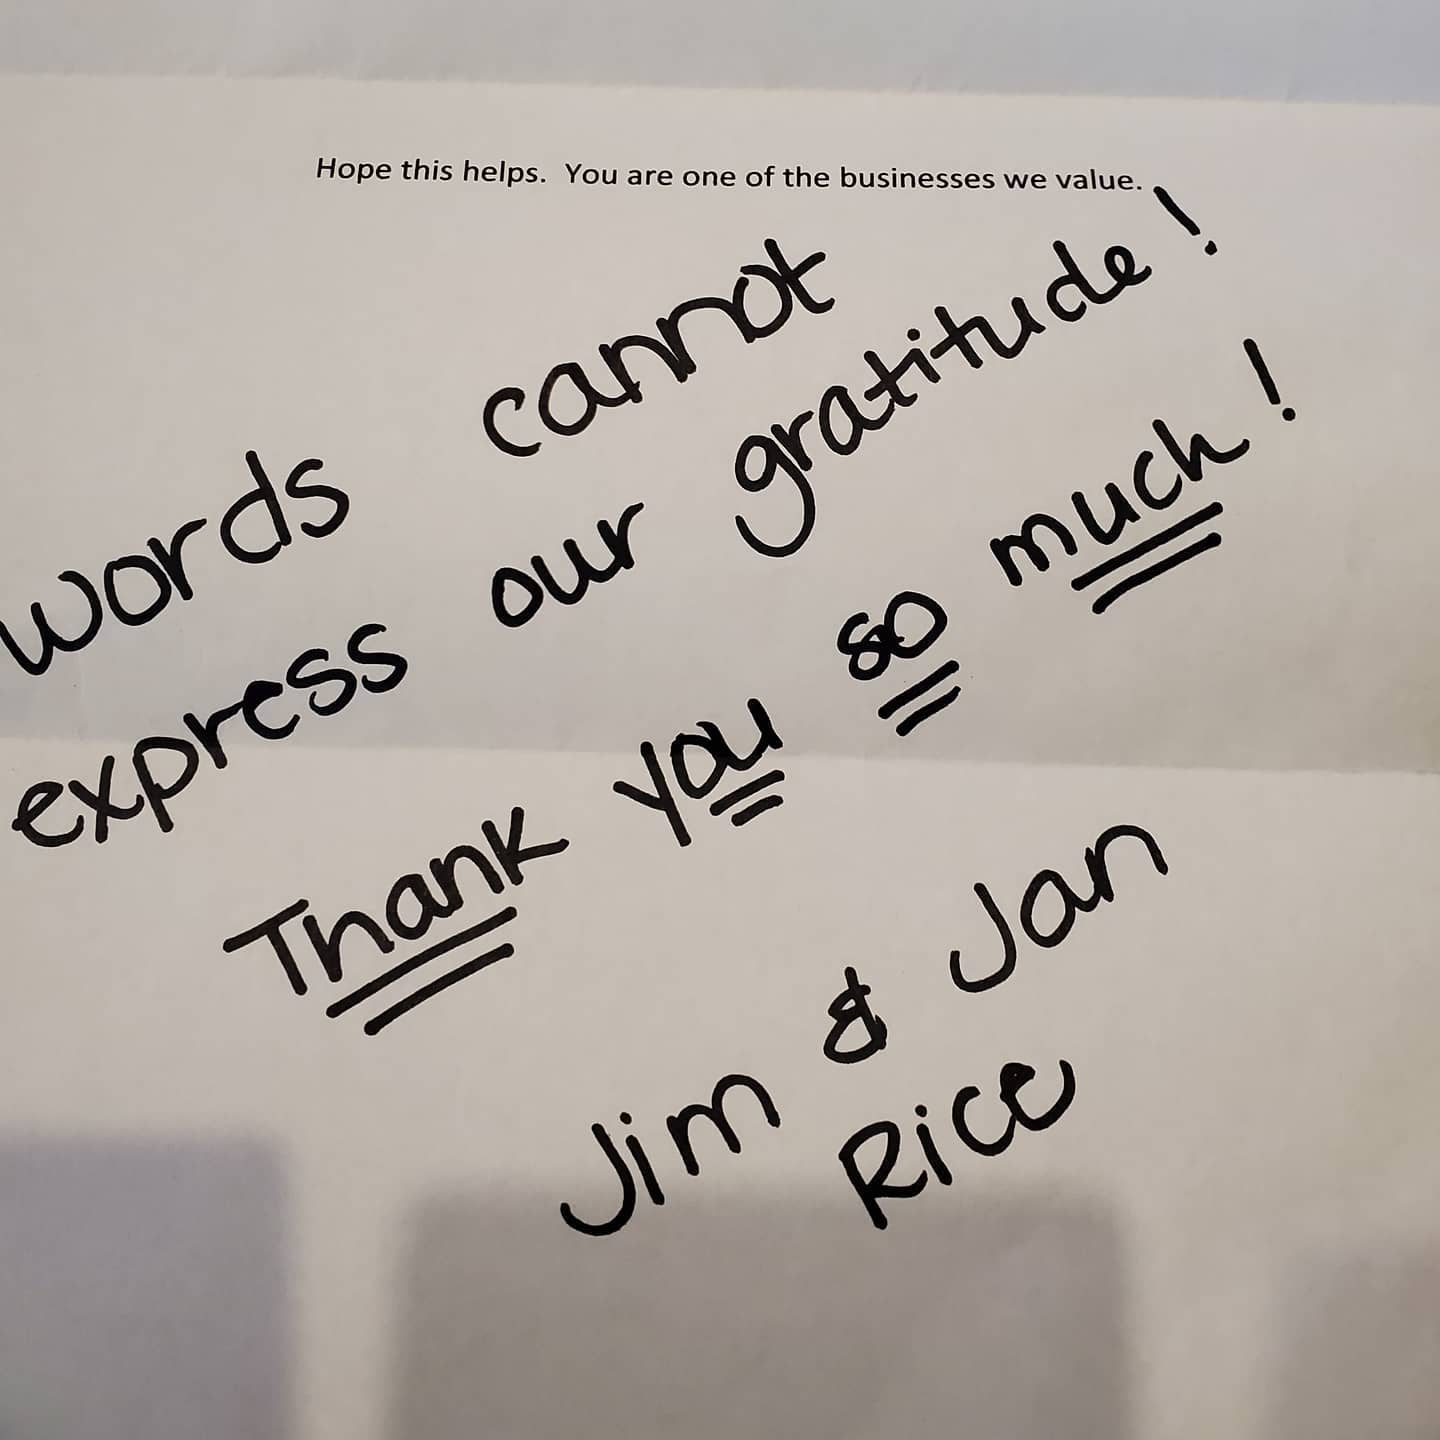 Hope this helps.  You are one of the businesses we value.
words cannot
express our gratitude!
Thank you so much!
Jim & Jan
Rice